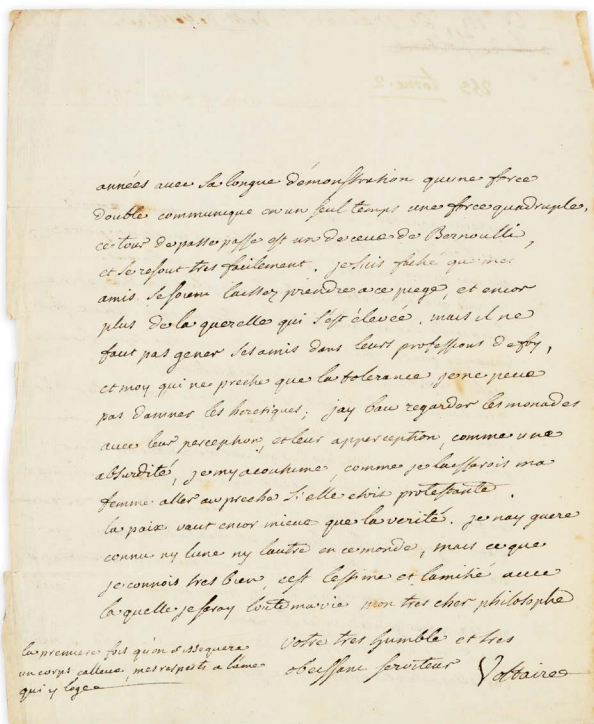 263 tome 2
années avec sa longue démonstration qu'une force
double communique en un seul temps une force quadruple.
ce tour de passe passe est un de ceux de Bernoulli,
et se resout tres facilement. je suis faché que mes
amis se soient laissez prendre a ce piege, et encor
plus de la querelle qui s'est élevée. mais il ne
faut pas gener ses amis dans leurs professions de foy,
et moy qui ne preche que la tolerance je ne peux
pas damner les heretiques; jay beau regarder les monades
avec leur perception, et leur apperception, comme une
absurdité, je my acoutume, comme je laisserois ma
femme aller au preche si elle etoit protestante.
la paix vaut encor mieux que la verité. je nay guere
connu ny lune ny lautre en ce monde, mais ce que
je connois tres bien, cest lestime et lamitié avec
la quelle je seray toute ma vie mon tres cher philosophe
votre tres humble et tres
obeissant serviteur Voltaire
la premiere fois qu'on dissequera
un corps calleux, mes respects a lame
qui y loge